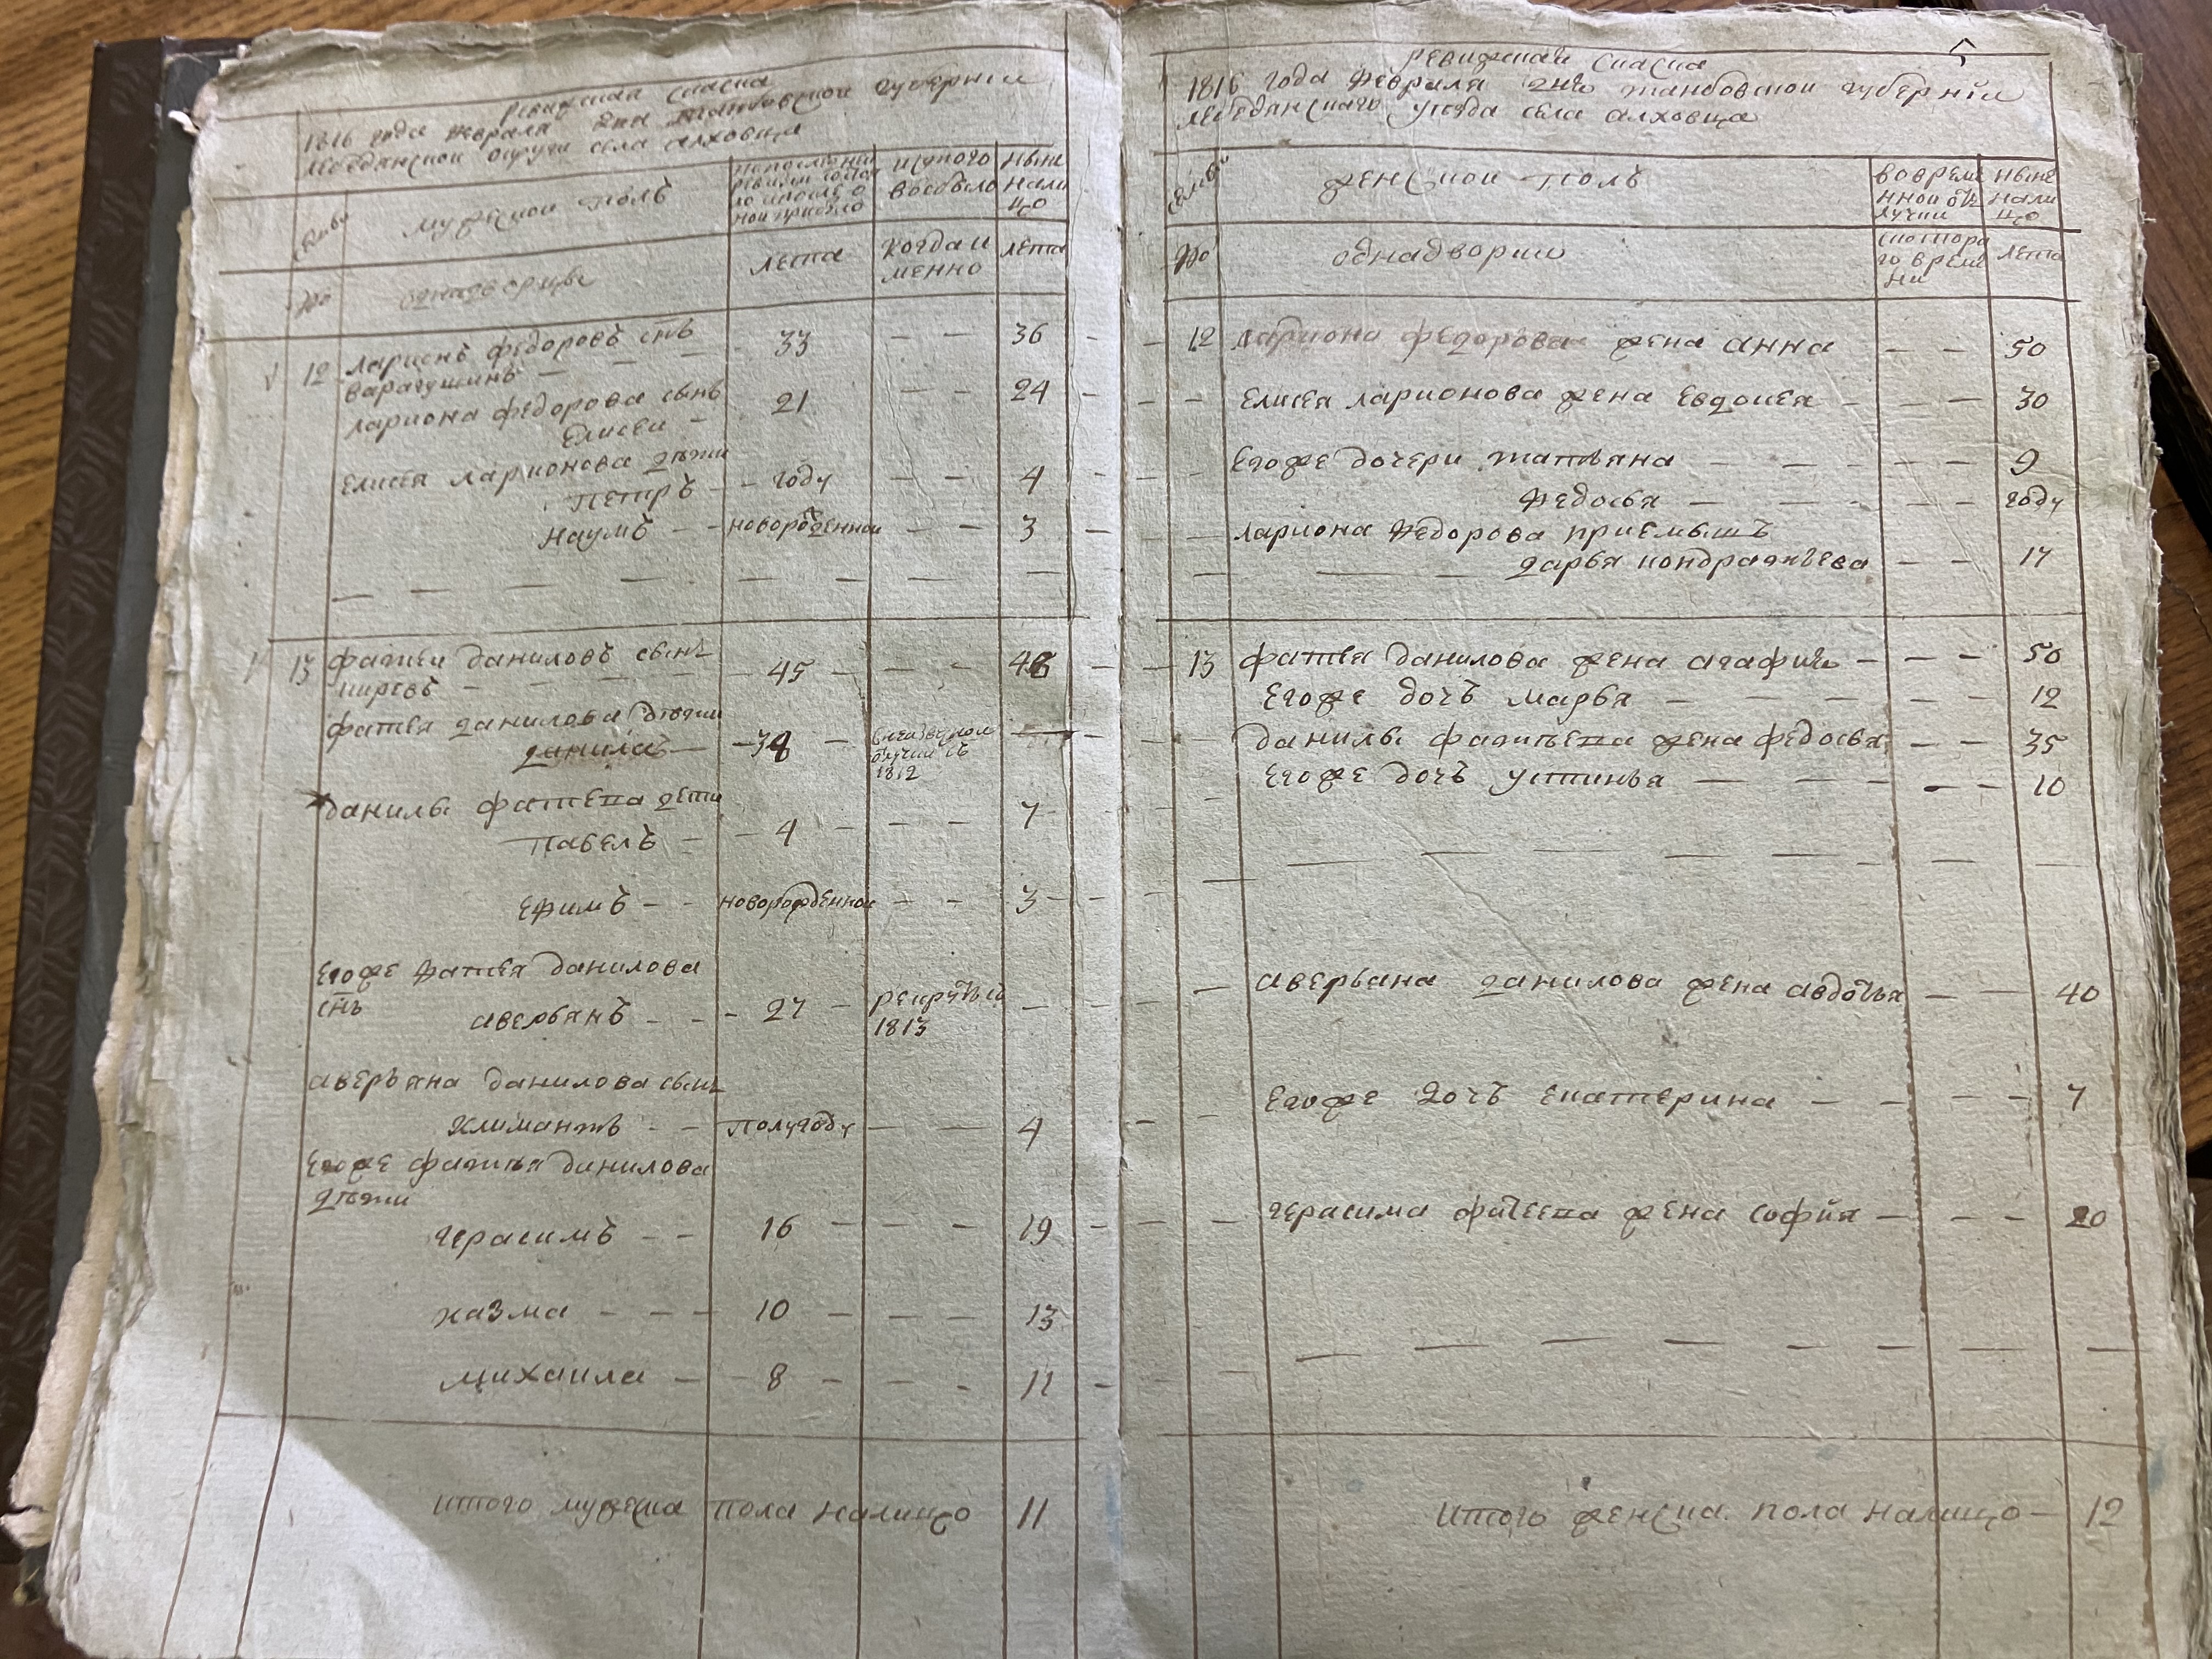 ревизская сказка
1816 года февраля дня танбовской губернии
лебедянской округи села алховца
семьи
мужескои полъ
попоследнеи
ревизии состоя
ло ипосле о
ной прибыло
исътого
воебыло
ныне
нали
цо
№
однодворцы
лета
когда и
менно
лета
12
ларионъ федоровъ снъ
варагушинъ
33
36
лариона федорова сынъ
елисеи
21
24
елисея ларионова дѣти
петръ
году
4
наумъ
новорожденнои
3
13
фатеи даниловъ сынъ
ширевъ
45
48
фатея данилова дѣти
данила
34
1812
данилы фатеева дети
павелъ
4
7
ефимъ
новорожденнои
3
егоже фатея данилова
снъ
аверьянъ
27
рекрутъ въ
1813
аверьяна данилова сынъ
климантъ
полугоду
4
егоже фатѣя данилова
дѣти
герасимъ
16
19
казма
10
13
михаила
8
11
итого мужеска пола налицо
11
ревижская сказка
1816 года февраля дня танбовской губернии
лебедянскаго уѣзда села алховца
семьи
женскои полъ
вовреме
нной от
лучки
ныне
нали
цо
№
однадворки
скотора
го време
ни
лета
12
лариона федорова жена анна
50
елисея ларионова жена евдокея
30
егоже дочери татьяна
9
федосья
году
лариона федорова приемышъ
дарья кондратьева
17
13
фатея данилова жена агафия
50
егоже дочь марья
12
данилы фатѣева жена федосья
35
егоже дочь устинья
10
аверьяна данилова жена авдотья
40
егоже дочь екатерина
7
герасима фатеева жена софия
20
итого женска пола налицо
12